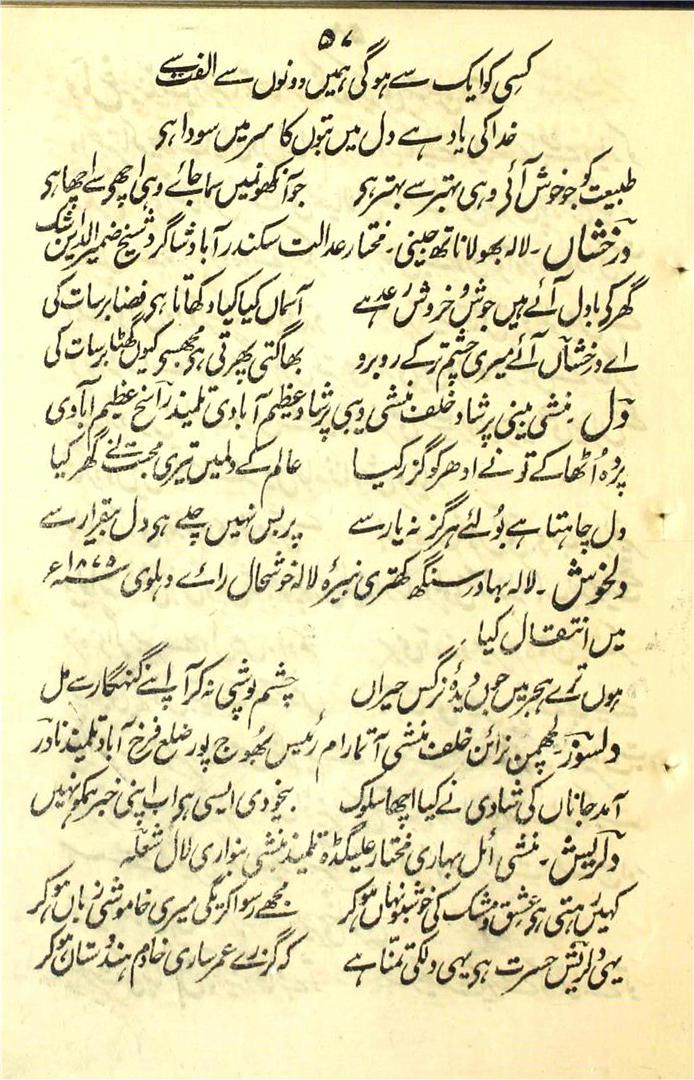 ۵۷
کسی کو ایک سے ہوگی ہمیں دونوں سے الفت ہے
خدا کی یاد ہے دل میں بتوں کا سر میں سودا ہی
طبیعت کو جو خوش آئی وہی بہتر سے بہتر ہی جو آنکھونمیں سما جائے وہی اچھی سے اچھا ہی
درخشاں ۔ لالہ بھولا ناتھ جینی ۔ مختار عدالت سکندر آباد شاگرد شیخ ضمیر الدین اشک
گھر کے بادل آئے ہیں جوش و خروش رعد ہے آسماں کیا کیا دکھاتا ہی فضا برسات کی
اے درخشاں آئے میری چشم تر کے روبرو بھاگتی پھرتی ہی مجھسے کیوں گھٹا برسات کی
دل ۔ منشی بینی پرشاد خلف منشی دیبی پرشاد عظیم آبادی تلمیذ راسخ عظیم آبادی
پردہ اُٹھا کے تو نے ادھر کو گزر کیا عالم کے دلمیں تیری محبت نے گھر کیا
دل چاہتا ہے بولئے ہرگز نہ یار سے پر بس نہیں چلے ہی دل بیقرار سے
دلخوش ۔ لالہ بہادر سنگھ کھتری نبیرۂ لالہ خوشحال رائے دہلوی ۱۸۷۵ء
میں انتقال کیا ۔
ہوں ترے ہجر میں جوں دیدۂ نرگس حیراں چشم پوشی نہ کر آ اپنے گنہگار سے مل
دلسوز ۔ لچھمن نرائن خلف منشی آتمارام رئیس بھوج پور ضلع فرخ آباد تلمیذ نادر
آمد جاناں کی شادی نے کیا اچھا سلوک بیخودی ایسی ہی اب اپنی خبر ہمکو نہیں
دلریش ۔ منشی اٹل بہاری مختار علیگڈہ تلمیذ منشی بنواری لال شعلہ
کہیں رہتی ہی عشق و مشک کی خوشبو نہاں ہو کر مجھے رسوا کریگی میری خاموشی زباں ہو کر
یہی دلریش حسرت ہی یہی دلکی تمنا ہے کہ گزرے عمر ساری خادم ہندوستان ہو کر